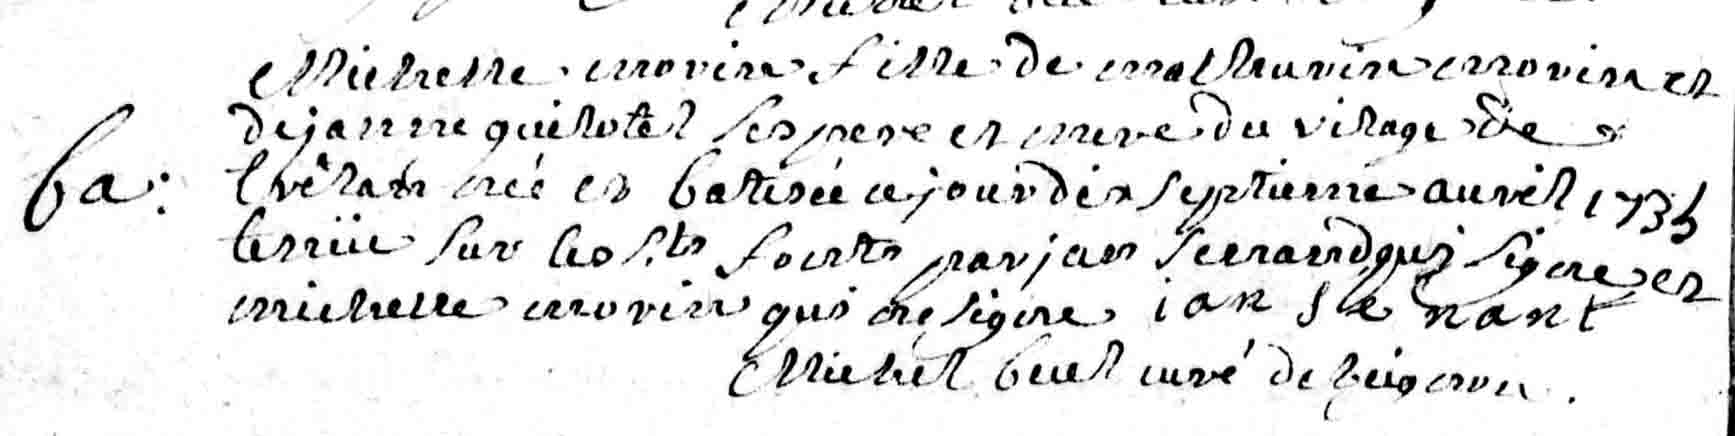 Michelle morin fille de mathurin morin et
de janne quilotel ses pere et mere du village de
ba: née et batisée ce jour dix septieme auvril 1735
tenüe sur les sts fonts par jan senant qui signe et
michelle morin qui ne signe jan senant
Michel buel curé de